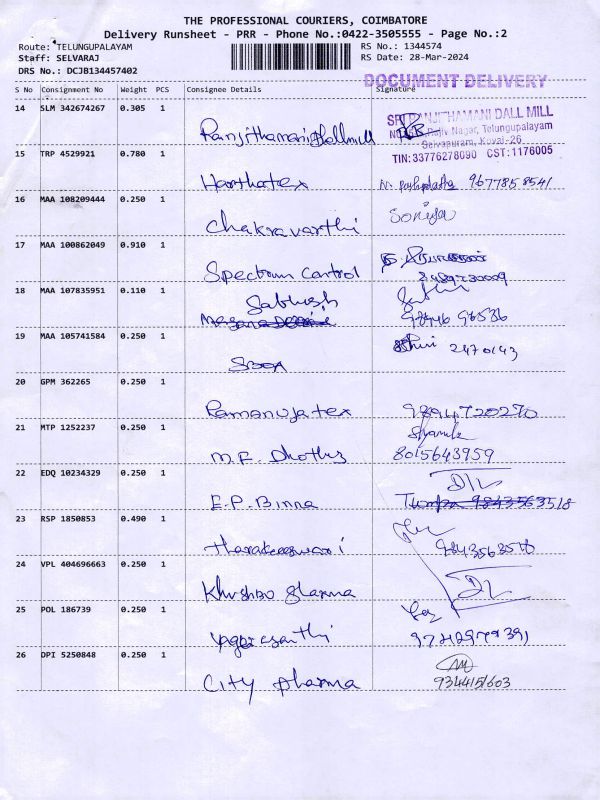 THE PROFESSIONAL COURIERS, COIMBATORE
Delivery Runsheet - PRR - Phone No.:0422-3505555 - Page No.:2
Route: TELUNGUPALAYAM RS No.: 1344574
Staff: SELVARAJ RS Date: 28-Mar-2024
DRS No.: DCJB134457402
DOCUMENT DELIVERY
S No Consignment No Weight PCS Consignee Details Signature
14 SLM 342674267 0.305 1
SRI RANJITHAMANI DALL MILL
Rajiv Nagar, Telungupalayam
Selvapuram, Kovai-26
TIN:33776278090 CST:1176005
Ranjithamani Dallmill
15 TRP 4529921 0.780 1
Harthatex 9677858541
16 MAA 108209444 0.250 1
Soniya
Chakravarthi
17 MAA 100862049 0.910 1
Spectrum Control
18 MAA 107835951 0.110 1
Sabhesh
19 MAA 105741584 0.250 1
2470143
20 GPM 362265 0.250 1
Ramanuja tex 9894720270
21 MTP 1252237 0.250 1
M.F. Dhothy 8015643959
22 EDQ 10234329 0.250 1
E.P. Binna
23 RSP 1850853 0.490 1
Tharakeeswari 9843563518
24 VPL 404696663 0.250 1
Khushboo Sharma
25 POL 186739 0.250 1
26 DPI 5250848 0.250 1
City pharma 9344151603